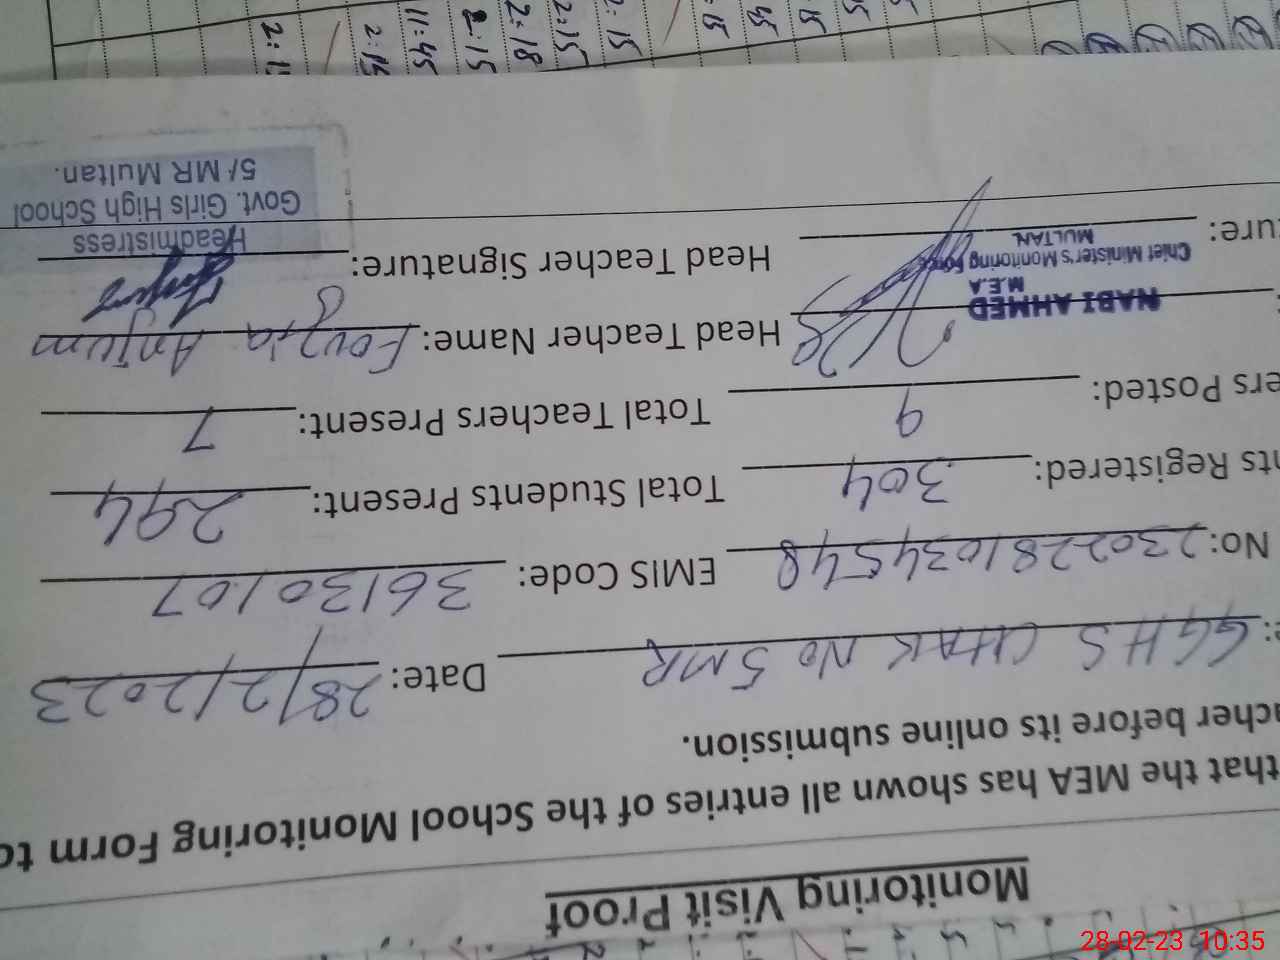 Monitoring Visit Proof
that the MEA has shown all entries of the School Monitoring Form to
cher before its online submission.
: GGHS CHAK No 5MR Date: 28/2/2023
No: 2302281034548 EMIS Code: 36130107
ts Registered: 304 Total Students Present: 294
ers Posted: 9 Total Teachers Present: 7
Head Teacher Name: Fouzia Anjum
NABI AHMED
M.E.A
Chief Minister's Monitoring Force
MULTAN.
ture: Head Teacher Signature:
Headmistress
Govt. Girls High School
5/ MR Multan.
2:15
11:45
2:15
2:18
2:15
2:15
15
45
15
15
28-02-23 10:35